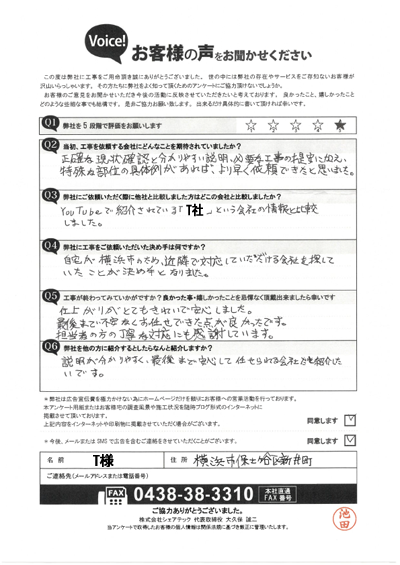 Voice!
お客様の声をお聞かせください
この度は弊社に工事をご用命頂き誠にありがとうございました。世の中には弊社の存在やサービスをご存知ないお客様が
沢山いらっしゃいます。その方たちに弊社をよく知って頂くためのアンケートにご協力頂けないでしょうか。
お客様のご意見をお聞かせいただき今後の活動に反映させていただきたいと考えております。良かったこと、嬉しかったこと
どのような些細な事でも結構です。是非ご協力お願い致します。出来るだけ具体的に書いて頂ければ幸いです。
Q1 弊社を5段階で評価をお願いします ☆ ☆ ☆ ☆ ★
Q2 当初、工事を依頼する会社にどんなことを期待されていましたか?
正確な現状確認と分かりやすい説明、必要な工事の提案に加え、
特殊な部位の具体例があれば、より早く依頼できたと思いました。
Q3 弊社にご依頼いただく際に他社と比較しました方はどこの会社と比較しましたか?
YouTubeで紹介されている「T社」という会社の情報と比較
しました。
Q4 弊社に工事をご依頼いただいた決め手は何ですか?
自宅が横浜市のため、近隣で対応していただける会社を探して
いたことが決め手となりました。
Q5 工事が終わってみていかがですか?良かった事・嬉しかったことを忌憚なく頂戴出来ましたら幸いです
仕上がりがとてもきれいで安心しました。
最後まで不安なくお任せできた点が良かったです。
担当者の方の丁寧な対応にも感謝しています。
Q6 弊社を他の方に紹介するとしたらなんと紹介しますか?
説明が分かりやすく、最後まで安心して任せられる会社だと紹介した
いです。
※弊社は広告宣伝費を極力かけない為にホームページだけを頼りにお客様への営業活動を行っております。
本アンケート用紙またはお客様宅の調査風景や施工状況を随時ブログ形式のインターネットに
掲載させて頂いております。
上記内容をインターネットや印刷物に掲載させていただく場合がございます。 同意します ☑
※今後、メールまたはSMSで広告を含むご連絡をさせていただくことがございます。 同意します ☑
名前 T様 住所 横浜市保土ケ谷区新井町
ご連絡先(メールアドレスまたは電話番号)
FAX 0438-38-3310 本社直通 FAX番号
ご協力ありがとうございました。
株式会社シェアテック 代表取締役 大久保 誠二
当アンケートで収得したお客様の個人情報は関係法規に基づき厳正に管理いたします。
池田